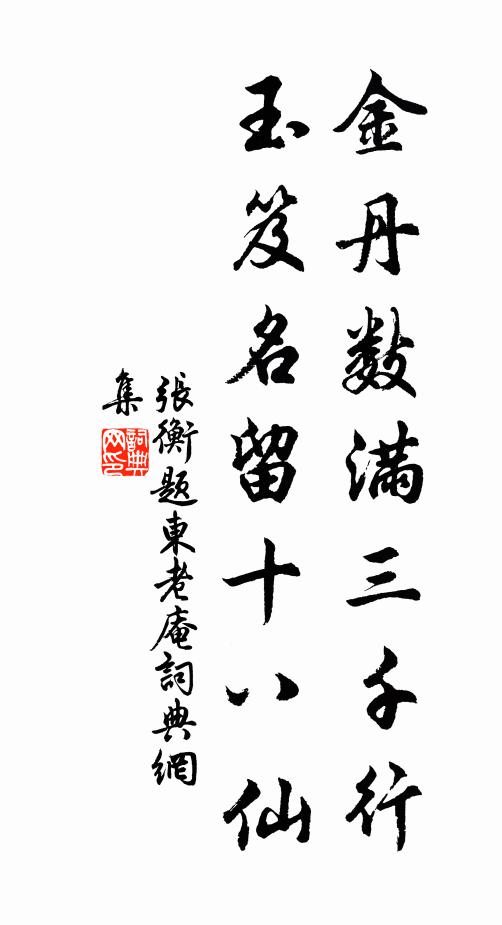 金丹数满三千行
玉笈名留十八仙
張衡題東老庵詞典網
集
詞典网印